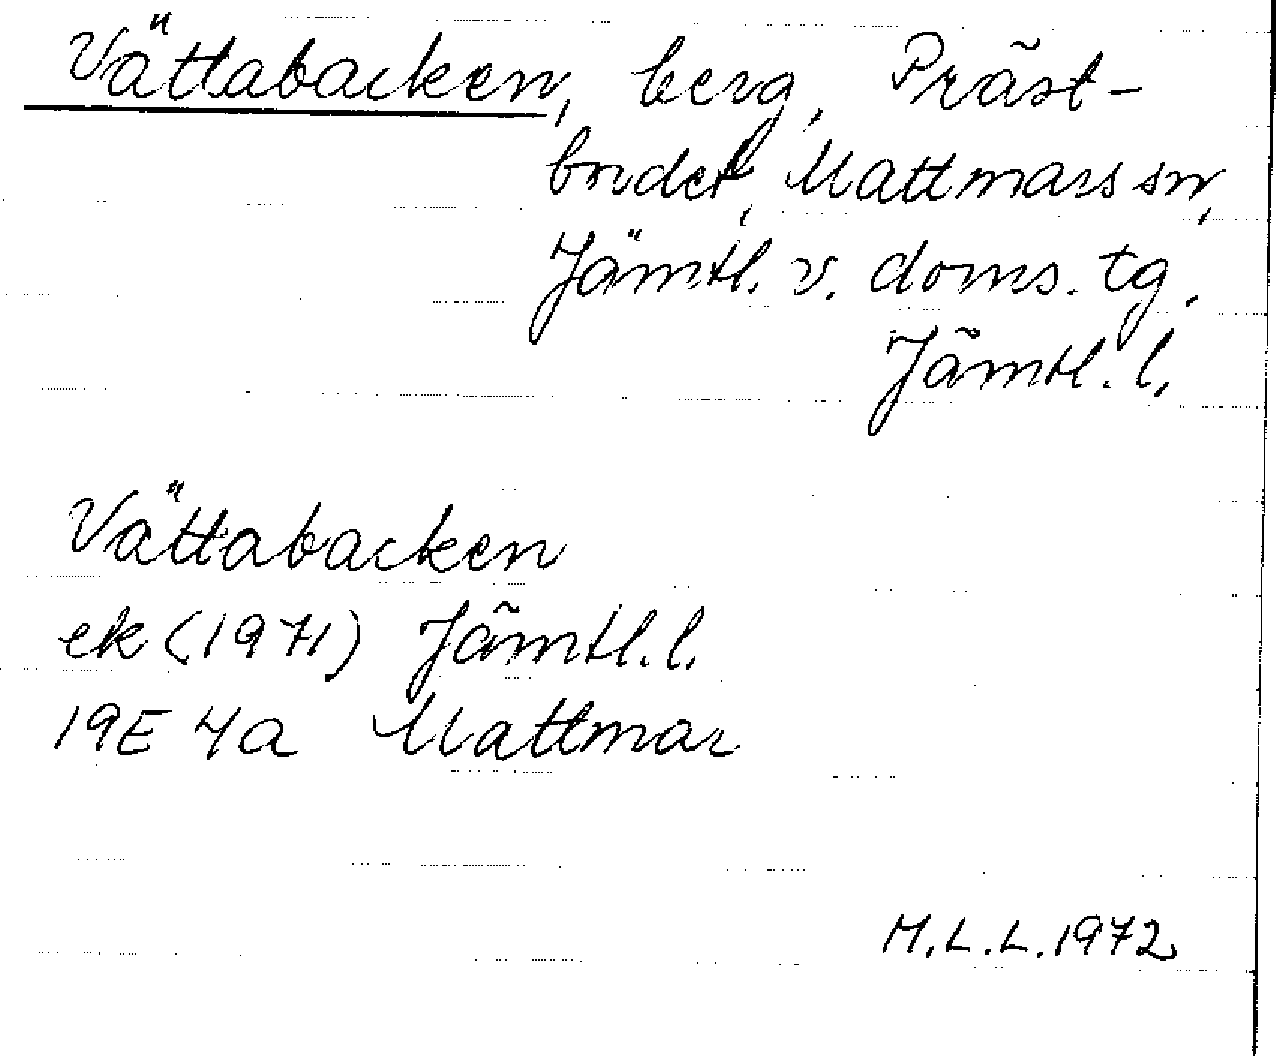 Vättabacken, berg, Präst-
bordet, Mattmars sn,
Jämtl. v. doms. tg.
Jämtl. l.
Vättabacken
ek (1971) Jämtl. l.
19E 4a Mattmar
M.L.L. 1972